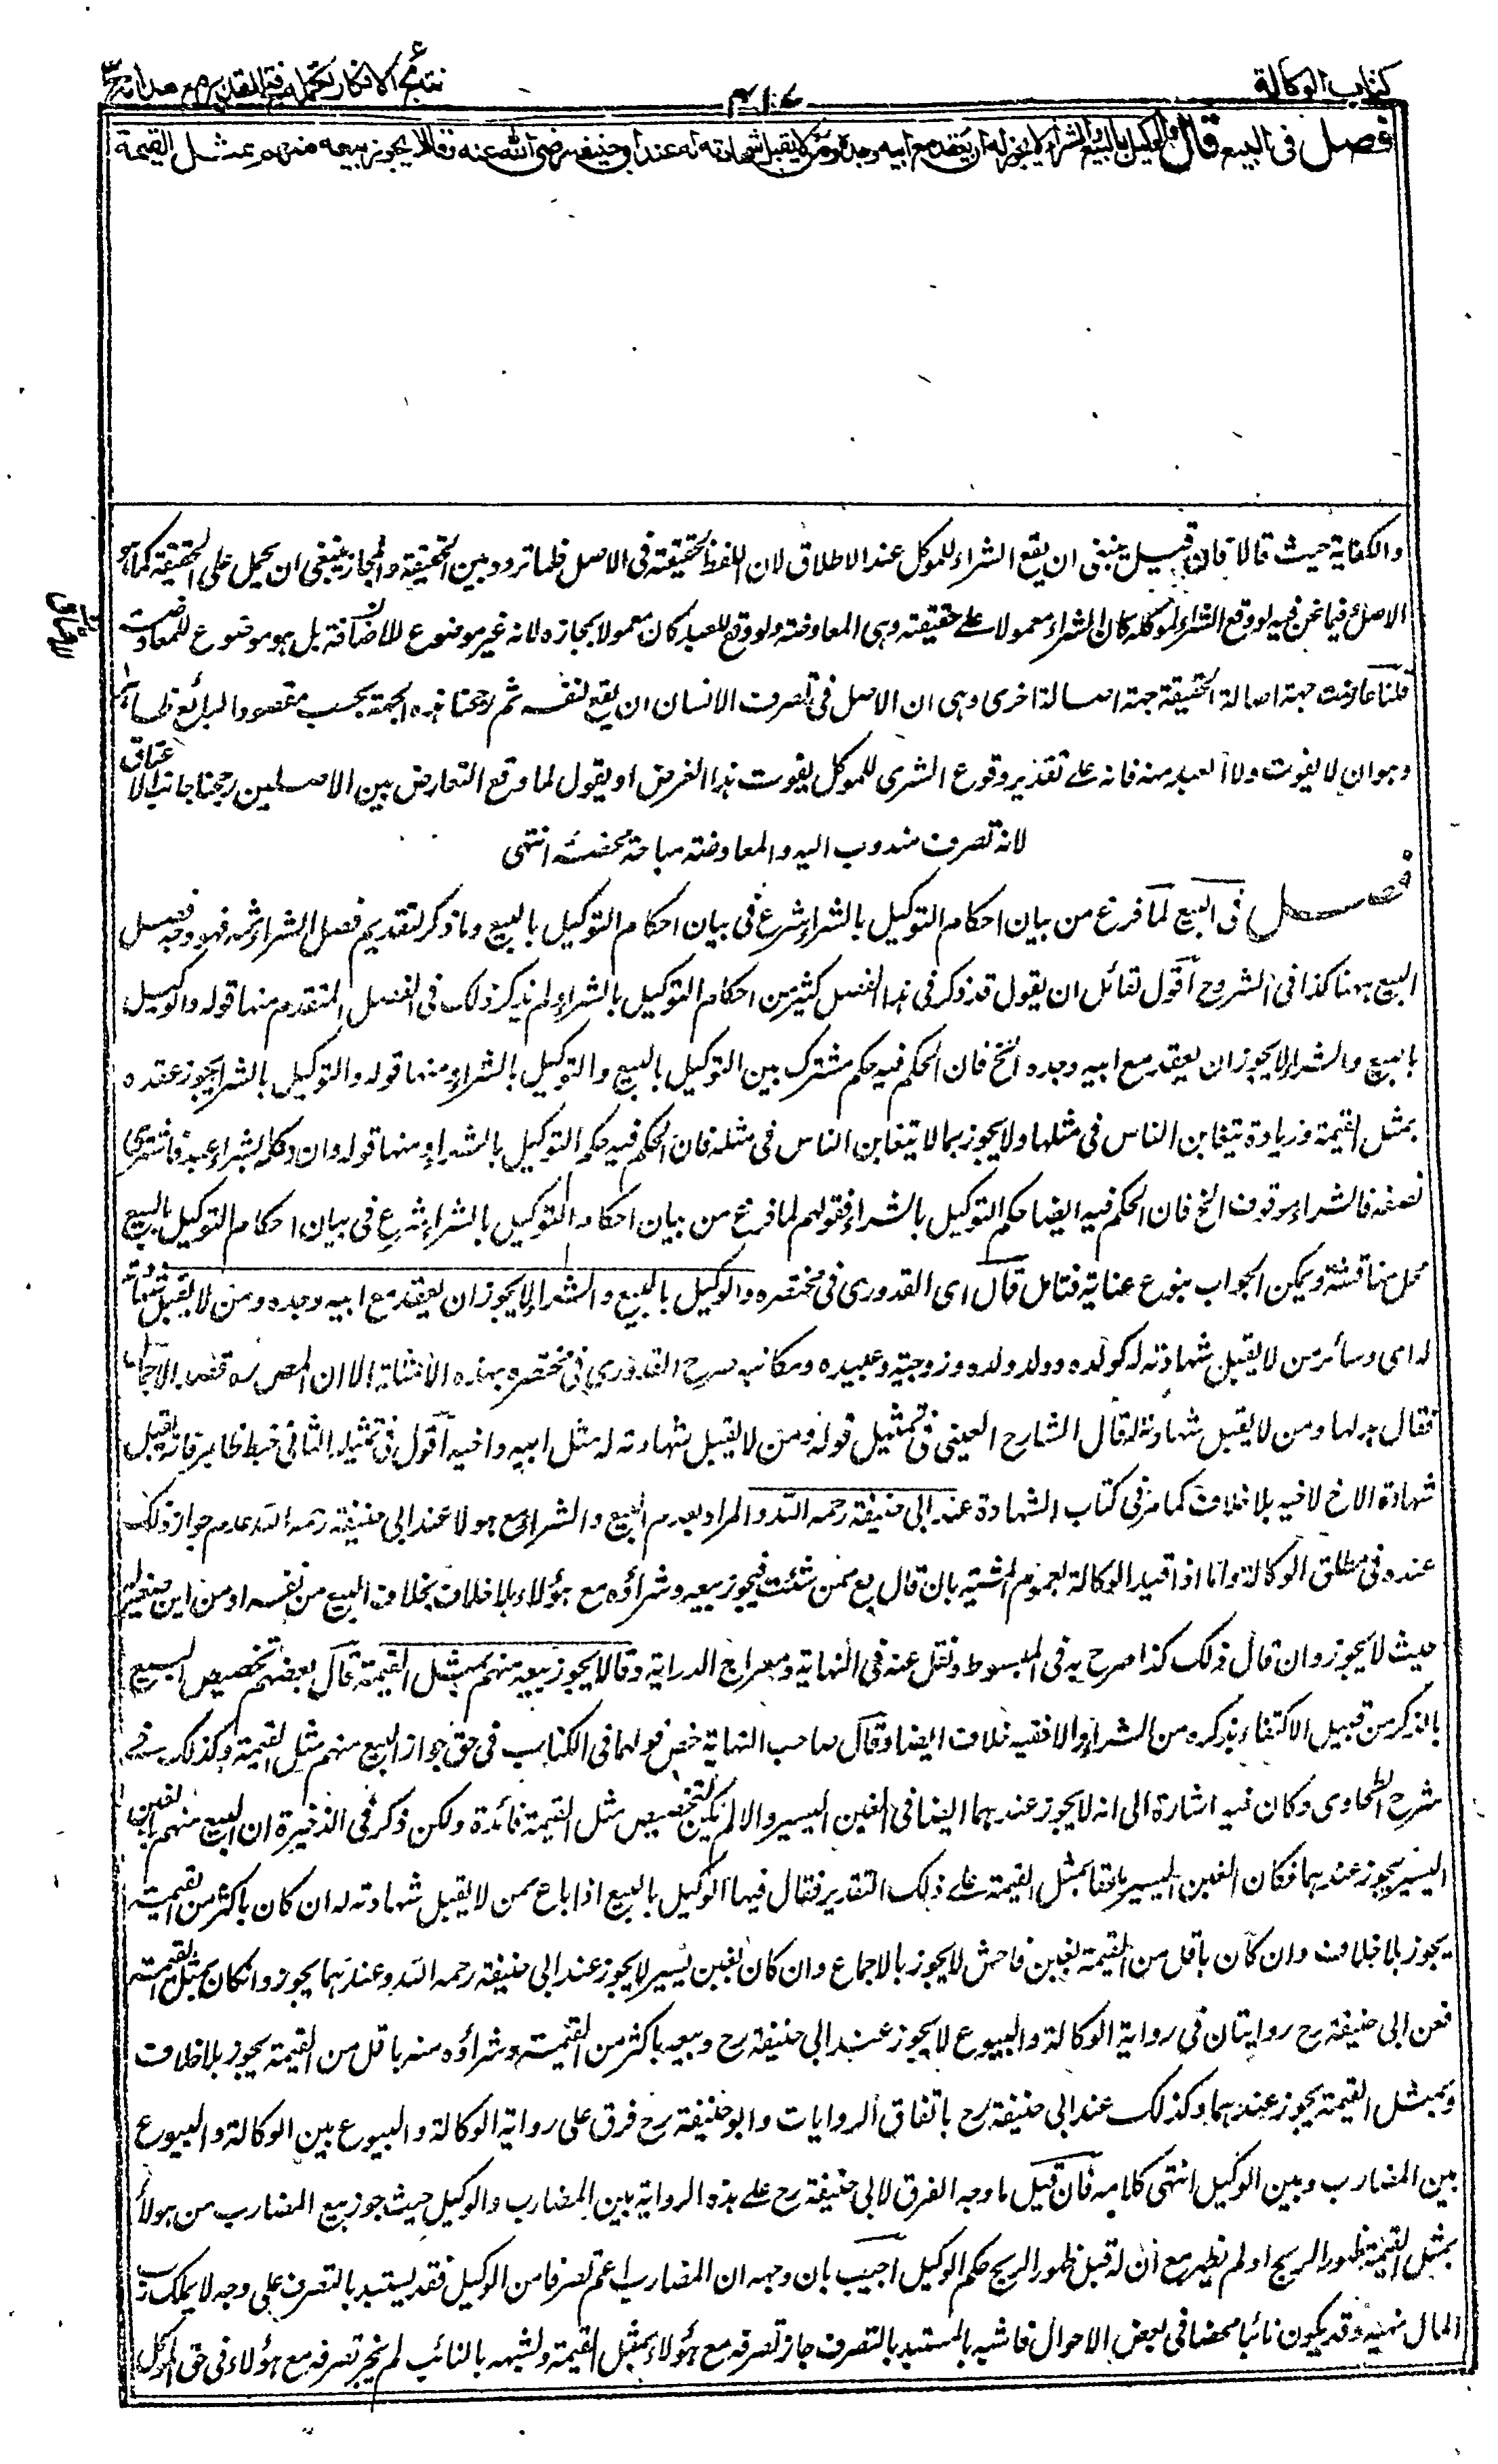 كتاب الوكالة
نتائج الافكار تكملة فتح القدير مع هدايه ج
فصل فى البيع قال والوكيل بالبيع والشراء لا يجوز له ان يعقد مع ابيه وجده ومن لا يقبل شهادته له عند ابى حنيفة رضى الله عنه وقالا يجوز بيعه منهم بمثل القيمة
والكفاية حيث قالا فان قيل ينبغى ان يقع الشراء للموكل عند الاطلاق لان اللفظ لحقيقته فى الاصل فلما تردد بين الحقيقة والمجاز ينبغى ان يحمل على الحقيقة كما هو
الاصل وفيما نحن فيه لو وقع الشراء لموكله كان الشراء معمولا على حقيقته وهى المعاوضة ولو وقع للعبد كان معمولا بمجازه لانه غير موضوع للاضافة بل هو موضوع للمعاوضة
قلنا عارضت جهة اصالة الحقيقة جهة اصالة اخرى وهى ان الاصل فى تصرف الانسان ان يقع لنفسه ثم رجحنا هذه الجهة بحسب مقصود البائع ظاهرا
وهو ان لا يفوت ولاء العبد منه فانه على تقدير وقوع الشرى للموكل يفوت هذا الغرض او يقول لما وقع التعارض بين الاصلين رجحنا جانب الاعتاق
لانه تصرف مندوب اليه والمعاوضة مباحة محضة انتهى
فصل فى البيع لما فرغ من بيان احكام التوكيل بالشراء شرع فى بيان احكام التوكيل بالبيع وما ذكر لتقديم فصل الشراء ثمه فهو وجه فصل
البيع ههنا كذا فى الشروح اقول لقائل ان يقول قد ذكر فى هذا الفصل كثير من احكام التوكيل بالشراء ولم يذكر ذلك فى الفصل المتقدم منها قوله والوكيل
بالبيع والشراء لا يجوز ان يعقد مع ابيه وجده الخ فان الحكم فيه حكم مشترك بين التوكيل بالبيع والتوكيل بالشراء ومنها قوله والتوكيل بالشراء يجوز عقده
بمثل القيمة وزيادة يتغابن الناس فى مثلها ولا يجوز بما لا يتغابن الناس فى مثله فان الحكم فيه حكم التوكيل بالشراء ومنها قوله وان وكله بشراء عبد فاشترى
نصفه فالشراء موقوف الخ فان الحكم فيه ايضا حكم التوكيل بالشراء فقولهم لما فرغ من بيان احكام التوكيل بالشراء شرع فى بيان احكام التوكيل بالبيع
محل مناقشة ويمكن الجواب بنوع عناية فتامل قال اى القدورى فى مختصره والوكيل بالبيع والشراء لا يجوز ان يعقد مع ابيه وجده ومن لا يقبل شهادته
له اى وسائر من لا يقبل شهادته له كولده وولد ولده وزوجته وعبيده ومكاتبه صرح القدورى فى مختصره بهذه الامثلة الا ان المصنف ره قصد الاجمال
فقال بدلها ومن لا يقبل شهادته له قال الشارح العينى فى تمثيل قوله ومن لا يقبل شهادته له مثل ابيه واخيه اقول فى تمثيله الثانى خبط ظاهر فانه يقبل
شهادة الاخ لاخيه بلا خلاف كما مر فى كتاب الشهادة عند ابى حنيفة رحمه الله والمراد بعدم البيع والشراء مع هولاء عند ابى حنيفة رحمه الله عدم جواز ذلك
عنده فى مطلق الوكالة واما اذا قيد الوكالة بعموم المشية بان قال بع ممن شئت فيجوز بيعه وشراؤه مع هؤلاء بلا خلاف بخلاف البيع من نفسه او من ابن صغير له
حيث لا يجوز وان قال ذلك كذا صرح به فى المبسوط ونقل عنه فى النهاية ومعراج الدراية وقالا يجوز بيعه منهم بمثل القيمة قال بعضهم تخصيص البيع
بالذكر من قبيل الاكتفاء بذكره من الشراء والا ففيه خلاف ايضا وقال صاحب النهاية خص قولهما فى الكتاب فى حق جواز البيع منهم بمثل القيمة وكذلك فى
شرح الطحاوى وكان فيه اشارة الى انه لا يجوز عندهما ايضا فى الغبن اليسير والا لم يكن لتخصيص مثل القيمة فائدة ولكن ذكر فى الذخيرة ان البيع منهم بالغبن
اليسير يجوز عندهما فكان الغبن اليسير ملحقا بمثل القيمة على ذلك التقدير فقال فيها الوكيل بالبيع اذا باع ممن لا يقبل شهادته له ان كان باكثر من القيمة
يجوز بلا خلاف وان كان باقل من القيمة بغبن فاحش لا يجوز بالاجماع وان كان بغبن يسير لا يجوز عند ابى حنيفة رحمه الله وعندهما يجوز وان كان بمثل القيمة
فعن ابى حنيفة رح روايتان فى رواية الوكالة والبيوع لا يجوز عند ابى حنيفة رح وبيعه باكثر من القيمة وشراؤه منه باقل من القيمة يجوز بلا خلاف
وبمثل القيمة يجوز عندهما وكذلك عند ابى حنيفة رح باتفاق الروايات وابو حنيفة رح فرق على رواية الوكالة والبيوع بين الوكالة والبيوع
بين المضارب وبين الوكيل انتهى كلامه فان قيل ما وجه الفرق لابى حنيفة رح على هذه الرواية بين المضارب والوكيل حيث جوز بيع المضارب من هولاء
بمثل القيمة ظهر الربح او لم يظهر مع ان له قبل ظهور الربح حكم الوكيل اجيب بان وجهه ان المضارب اعم تصرفا من الوكيل فقد يستبد بالتصرف على وجه لا يملك رب
المال نهيه وقد يكون نائبا محضا فى بعض الاحوال فلشبهه بالمستبد بالتصرف جاز تصرفه مع هؤلاء بمثل القيمة ولشبهه بالنائب لم يجز تصرفه مع هؤلاء فى حق الموكل